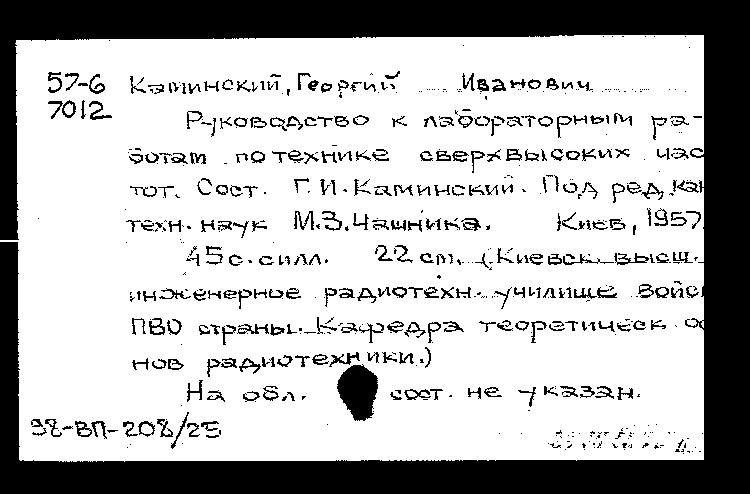 57-6 Каминский, Георгий Иванович
7012 Руководство к лабораторным ра-
ботам по технике сверхвысоких час
тот. Сост. Г.И. Каминский. Под ред. кан
техн. наук М.З. Чашника. Киев, 1957.
45 с. с илл. 22 cm. (Киевск. высш.
инженерное радиотехн. училище войс
ПВО страны. Кафедра теоретическ. ос
нов радиотехники.)
На обл. сост. не указан.
98-ВП-208/25